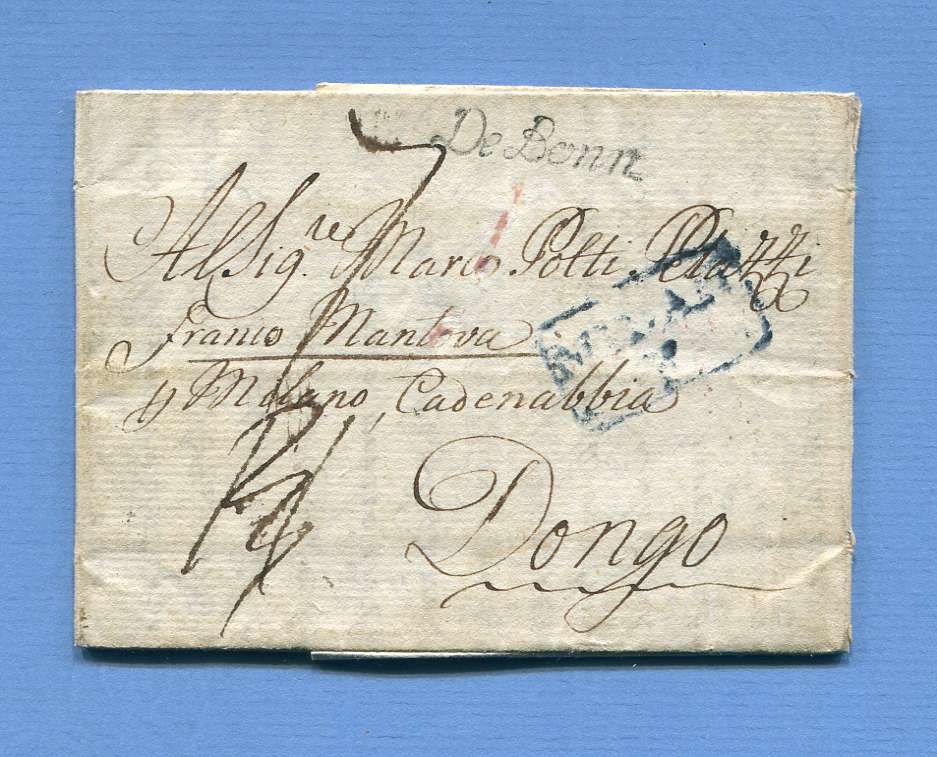 De Bonn
Al Sig.re Marco Polti Petazzi
franco Mantova
p Milano, Cadenabbia
Dongo